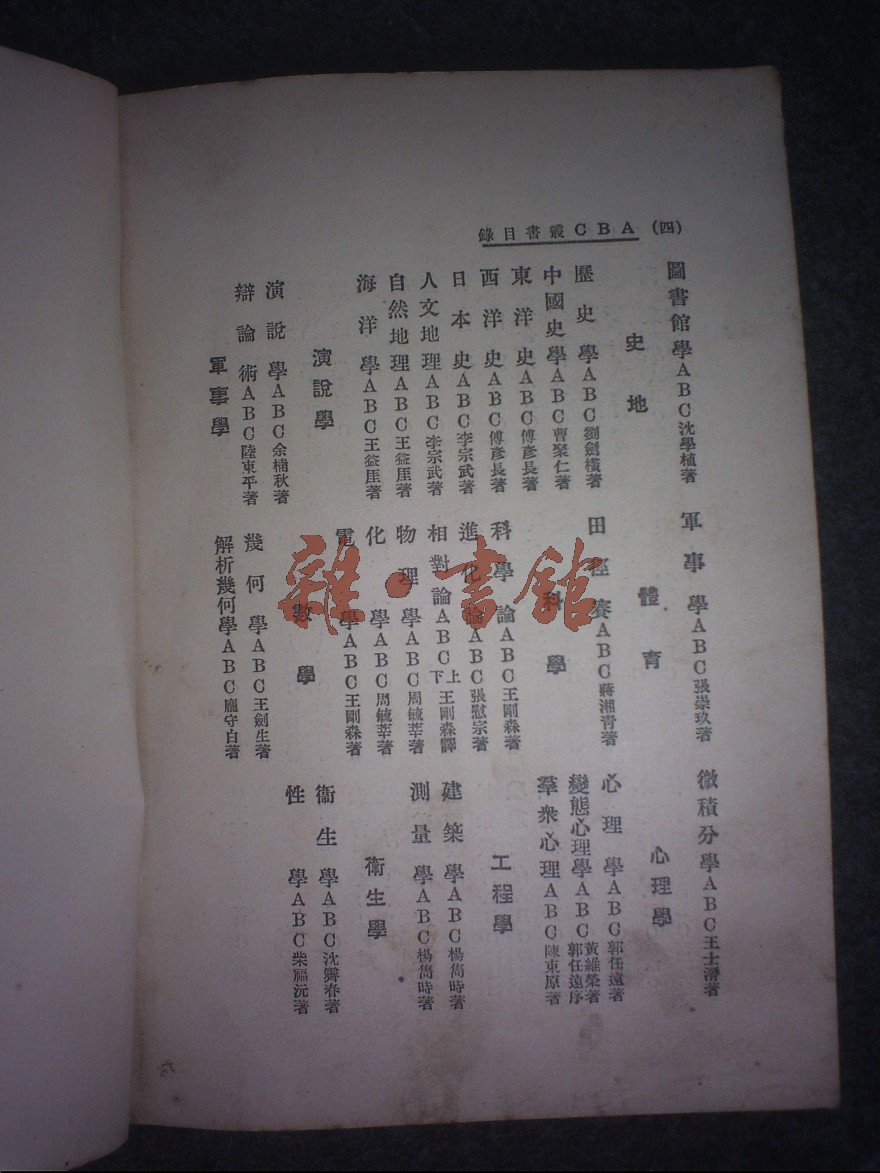 (四) ABC叢書目錄
圖書館學ABC沈學植著
史地
歷史學ABC劉劍橫著
中國史學ABC曹聚仁著
東洋史ABC傅彥長著
西洋史ABC傅彥長著
日本史ABC李宗武著
人文地理ABC李宗武著
自然地理ABC王益厓著
海洋學ABC王益厓著
演說學
演說學ABC余楠秋著
辯論術ABC陸東平著
軍事學
軍事學ABC張崇玖著
體育
田徑賽ABC蔣湘青著
科學
科學論ABC王剛森著
進化論ABC張慰宗著
相對論ABC上下王剛森譯
物理學ABC周毓莘著
化學ABC周毓莘著
電學ABC王剛森著
數學
幾何學ABC王劍生著
解析幾何學ABC龐守白著
微積分學ABC王士濳著
心理學
心理學ABC郭任遠著
變態心理學ABC黃維榮著郭任遠序
羣衆心理ABC陳東原著
工程學
建築學ABC楊雋時著
測量學ABC楊雋時著
衛生學
衞生學ABC沈霽春著
性學ABC柴福沅著
雜·書館